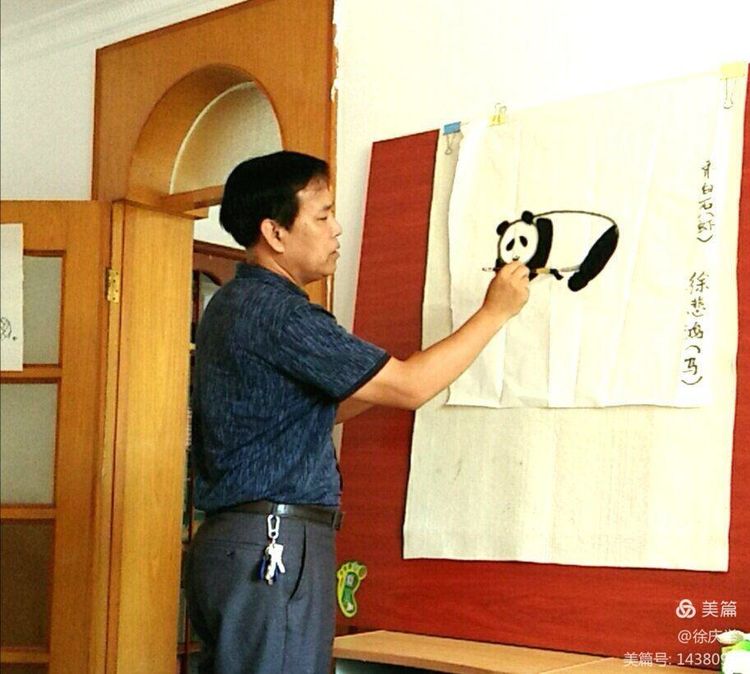 齐白石(虾)
徐悲鸿(马)
美篇
@徐庆
美篇号: 143809